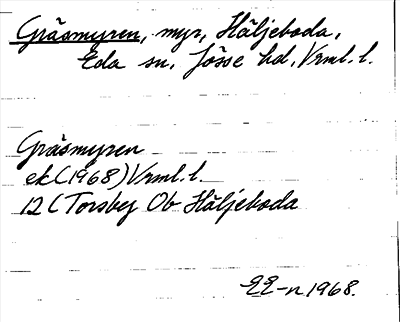 Gräsmyren, myr, Häljeboda,
Eda sn, Jösse hd, Vrml. l.
Gräsmyren
ek (1968) Vrml. l.
12 C Torsby Ob Häljeboda
EE-n 1968.